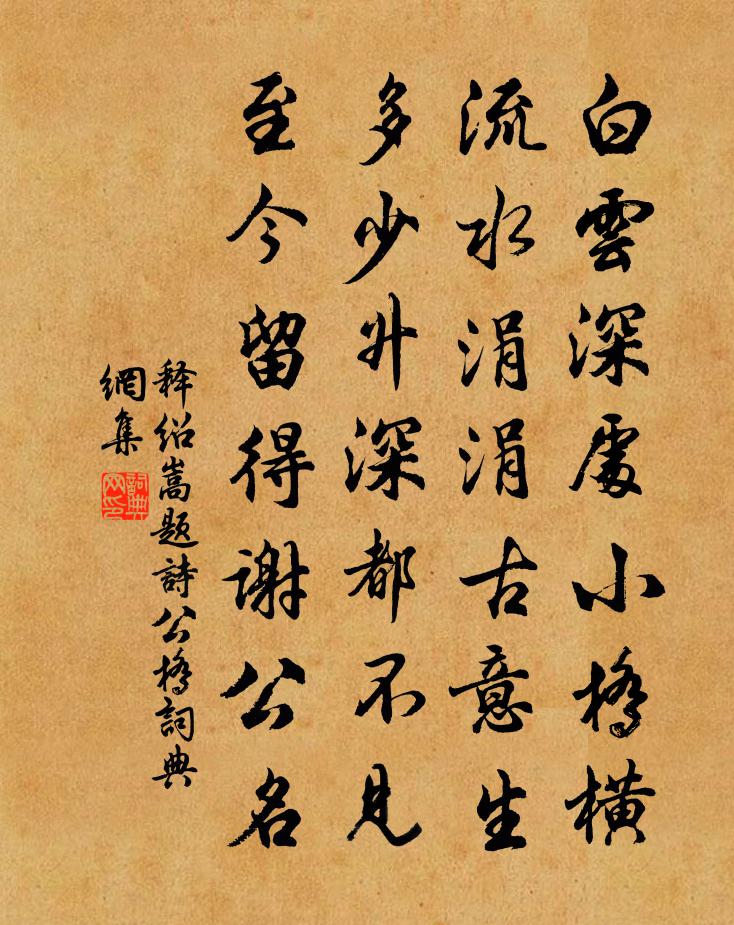 白雲深處小橋橫
流水涓涓古意生
多少升深都不見
至今留得謝公名
释绍嵩题詩公橋詞典
網集
詞典
网印